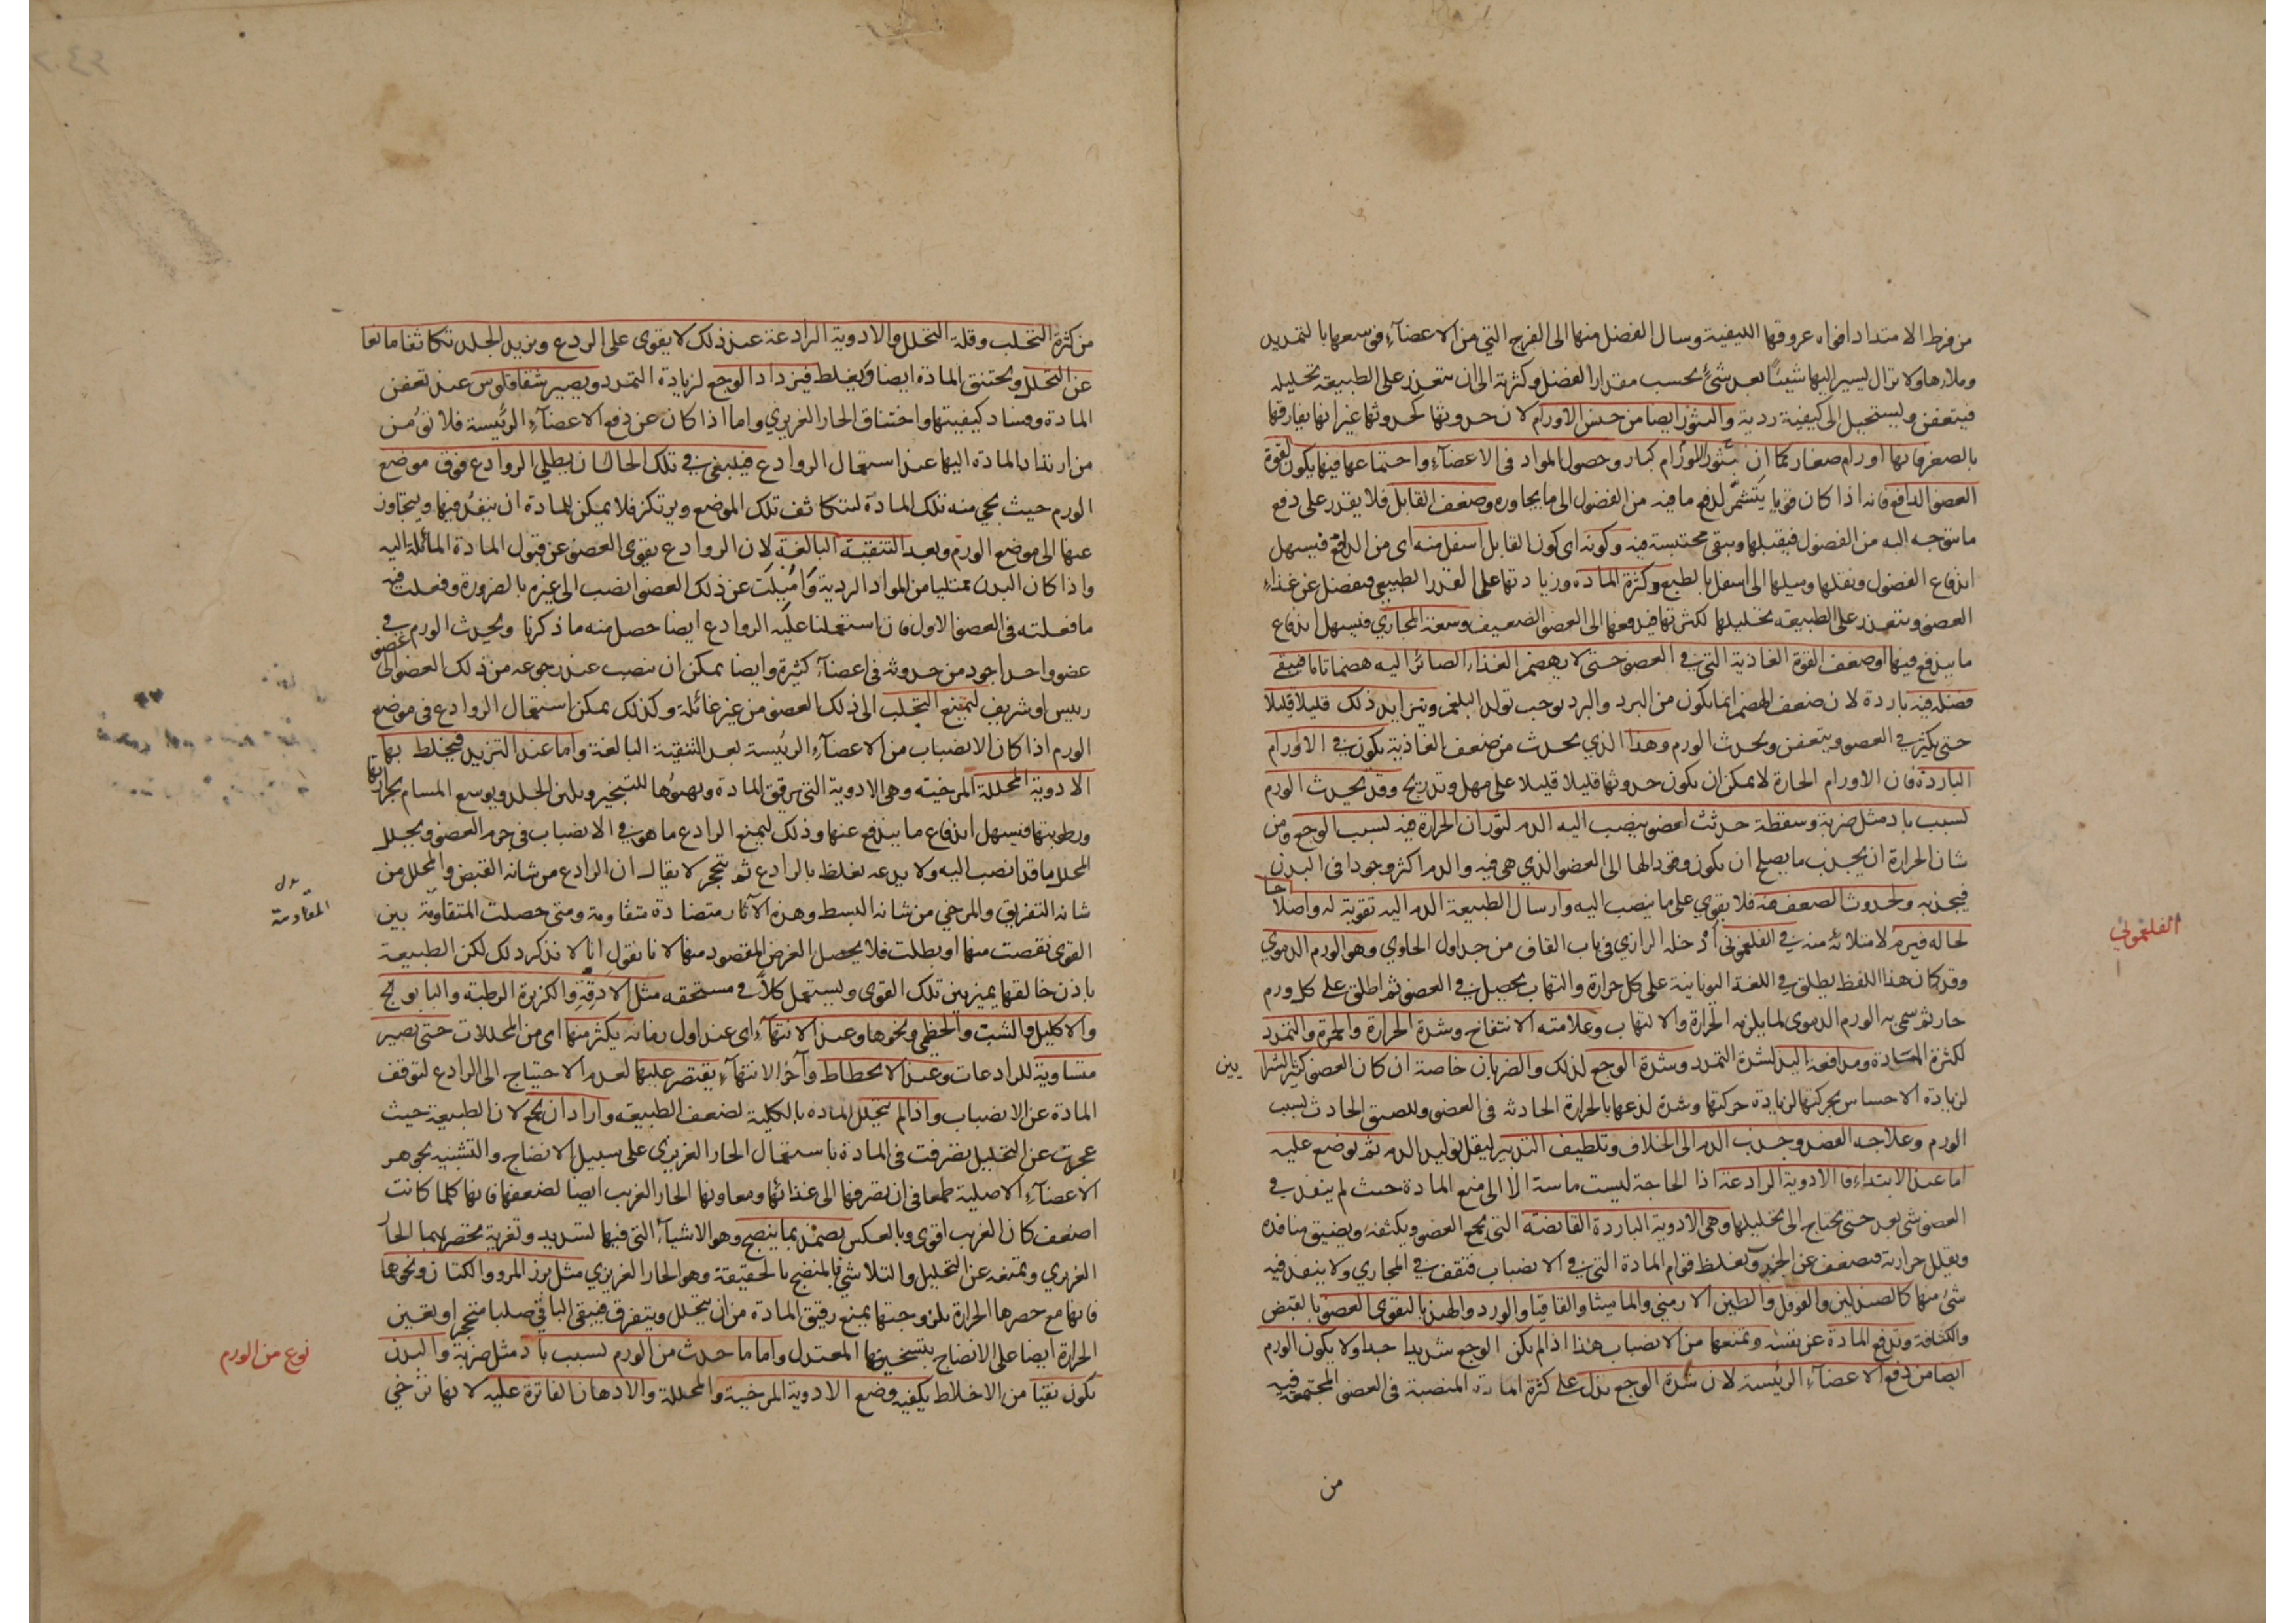 من فرط الامتداد افواه عروقها الليفية وسال الفضل منها الى الفرج التي من الاعضآء فوسعها بالتمديد
وملاءها ولا تزال يسير اليها شيئا بعد شئ بحسب مقدار الفضل وكثرته الى ان يتعذر على الطبيعة تحليله
فيتعفن ويستحيل الى كيفية ردية والبثور ايضا من جنس الاورام لان حدوثها كحدوثها غير انها يفارقها
بالصغر فانها اورام صغار كما ان بثور الاورام كبار وحصول المواد في الاعضآء واجتماعها فيها يكون لقوة
العضو الدافع فانه اذا كان قويا يتشمر لدفع ما فيه من الفضول الى ما يجاوره وضعف القابل فلا يقدر على دفع
ما يتوجه اليه من الفضول فيقبلها ويبقى محتبسة فيه وكونه اى كون القابل اسفل منه اى من الدافع فيسهل
اندفاع الفضول وثقلها وسيلها الى اسفل بالطبع وكثرة المادة وزيادتها على القدر الطبيعي فيفضل عن غذاء
العضو ويتعذر على الطبيعة تحليلها لكثرتها فيدفعها الى العضو الضعيف وسعة المجاري فيسهل اندفاع
ما يندفع فيها او ضعف القوة الغاذية التي في العضو حتى لا يهضم الغذاء الصائر اليه هضما تاما فيبقى
فضله فيه باردة لان ضعف الهضم انما يكون من البرد والبرد يوجب تولد البلغم ويتزايد ذلك قليلا قليلا
حتى يكثر في العضو ويتعفن ويحدث الورم وهذا الذي يحدث من ضعف الغاذية يكون في الاورام
الباردة فان الاورام الحارة لا يمكن ان يكون حدوثها قليلا قليلا على مهل وتدريج وقد يحدث الورم
لسبب باد مثل ضربة وسقطة حدثت لعضو ينصب اليه الدم لثوران الحرارة فيه لسبب الوجع ومن
شان الحرارة ان يجذب ما يصلح ان يكون وقودا لها الى العضو الذي هي فيه والدم اكثر وجودا في البدن
فيجذبه ولحدوث الضعف فيه فلا يقوي على ما ينصب اليه وارسال الطبيعة الدم اليه تقوية له واصلاحا
لحاله فيرم لامتلائه منه في الفلغموني ادخله الرازي في باب القاف من جداول الحاوي وهو الورم الدموي
الفلغموني
وقد كان هذا اللفظ يطلق في اللغة اليونانية على كل حرارة والتهاب يحصل في العضو ثم اطلق على كل ورم
حار ثم سمي به الورم الدموى لما يلزمه الحرارة والالتهاب وعلامته الانتفاخ وشدة الحرارة والحمرة والتمدد
لكثرة المادة ومدافعة اليد لشدة التمدد وشدة الوجع لذلك والضربان خاصة ان كان العضو كثير الشرايين
لزيادة الاحساس بحركتها لزيادة حركتها وشدة لذعها بالحرارة الحادثة في العضو ولضيق الحادث لسبب
الورم وعلاجه الفصد وجذب الدم الى الخلاف وتلطيف التدبير ليقل توليد الدم ثم يوضع عليه
اما عند الابتداء فالادوية الرادعة اذا الحاجة ليست ماسة الا الى منع المادة حيث لم ينفذ في
العضو شئ بعد حتى يحتاج الى تحليلها وهى الادوية الباردة القابضة التي يجمع العضو ويكثفه ويضيق منافذه
ويقلل حرارته فيضعف عن الجذب ويغلظ قوام المادة التي في الانصباب فتقف في المجاري ولا ينفذ فيه
شئ منها كالصندلين والفوفل والطين الارمني والماميثا والقاقيا والورد والهندبا ليقوى العضو بالقبض
والكثافة وتدفع المادة عن نفسه ويمنعها من الانصباب هذا اذا لم يكن الوجع شديدا جدا ولا يكون الورم
ايضا من دفع الاعضآء الرئيسة لان شدة الوجع يدل على كثرة المادة المنصبة في العضو المجتمعة فيه
من
من كثرة التحلب وقلة التحلل والادوية الرادعة عند ذلك لا يقوى على الردع ويزيد الجلد تكاثفا مانعا
عن التحلل ويحتنق المادة ايضا ويغلظ فيزداد الوجع لزيادة التمدد ويصير شقاقلوس عند تعفن
المادة وفساد كيفيتها واختناق الحار الغريزي واما اذا كان عن دفع الاعضآء الرئيسة فلا نؤمن
من ارتداد المادة اليها عند استعمال الروادع فينبغي في تلك الحال ان يطلي الروادع فوق موضع
الورم حيث يجي منه تلك المادة ليتكاثف تلك الموضع ويرتكز فلا يمكن للمادة ان ينفذ فيها ويتجاوز
عنها الى موضع الورم وبعد التنقية البالغة لان الروادع يقوى العضو عن قبول المادة المائلة اليه
واذا كان البدن ممتليا من المواد الردية واميلت عن ذلك العضو انصب الى غيره بالضرورة وفعلت فيه
ما فعلته في العضو الاول فان استعملنا عليه الروادع ايضا حصل منه ما ذكرنا ويحدث الورم في
عضو واحد اجود من حدوثه في اعضآء كثيرة وايضا يمكن ان ينصب عند رجوعه من ذلك العضو الى عضو
رييس او شريف لتمنع التحلب الى ذلك العضو من غير غائلة وكذلك يمكن استعمال الروادع في موضع
الورم اذا كان الانصباب من الاعضآء الرئيسة بعد التنقية البالغة واما عند التزيد فيخلط بها
الادوية المحللة المرخية وهى الادوية التي يرقق المادة ويهيؤها للتبخير ويلين الجلد ويوسع المسام بحرارتها
ورطوبتها فيسهل اندفاع ما يندفع عنها وذلك ليمنع الرادع ما هو في الانصباب في جرم العضو ويحلل
المحلل ما قد انصب اليه ولا يدعه يغلظ بالرادع ثم يتحجر لا يقال ان الرادع من شانه القبض والمحلل من
شانه التفريق والمرخي من شانه البسط وهذه الآثار متضادة متقاومة ومتى حصلت المتقاومة بين
المقاومة
القوى نقصت منها او بطلت فلا يحصل الغرض المقصود منها لانا نقول انا لا ننكر ذلك لكن الطبيعة
باذن خالقها يميز بين تلك القوى ويستعمل كلا في مستحقه مثل الادقة والكزبرة الرطبة والبابونج
والاكليل والشبت والخطمي ونحوها وعند الانتهآء اى عند اول زمانه يكثر منها اى من المحللات حتى يصير
متساوية للرادعات وعند الانحطاط وآخر الانتهآء يقتصر عليها لعدم الاحتياج الى الرادع لتوقف
المادة عن الانصباب واذا لم يتحلل المادة بالكلية لضعف الطبيعة واراد ان يجمع لان الطبيعة حيث
عجزت عن التحليل تصرفت في المادة باستعمال الحار الغريزي على سبيل الانضاج والتشبيه بجوهر
الاعضآء الاصلية طمعا في ان تصرفها الى غذائها ومعاونها الحار الغريب ايضا لضعفها فانها كلما كانت
اضعف كان الغريب اقوى وبالعكس يضمد بما ينضج وهو الاشيآء التي فيها تسديد وتغرية يحصر بهما الحار
الغريزي ويمنعه عن التحليل والتلاشي فالمنضج بالحقيقة وهو الحار الغريزي مثل بزر المرو والكتان ونحوها
فانها مع حصرها الحرارة بلزوجتها يمنع رقيق المادة من ان يتحلل ويتفرق فيبقى الباقي صلبا متحجرا ويعين
الحرارة ايضا على الانضاج بتسخينها المعتدل واما ما حدث من الورم لسبب باد مثل ضربة والبدن
نوع من الورم
يكون نقيا من الاخلاط يكفيه وضع الادوية المرخية والمحللة والادهان الفاترة عليه لانها ترخي